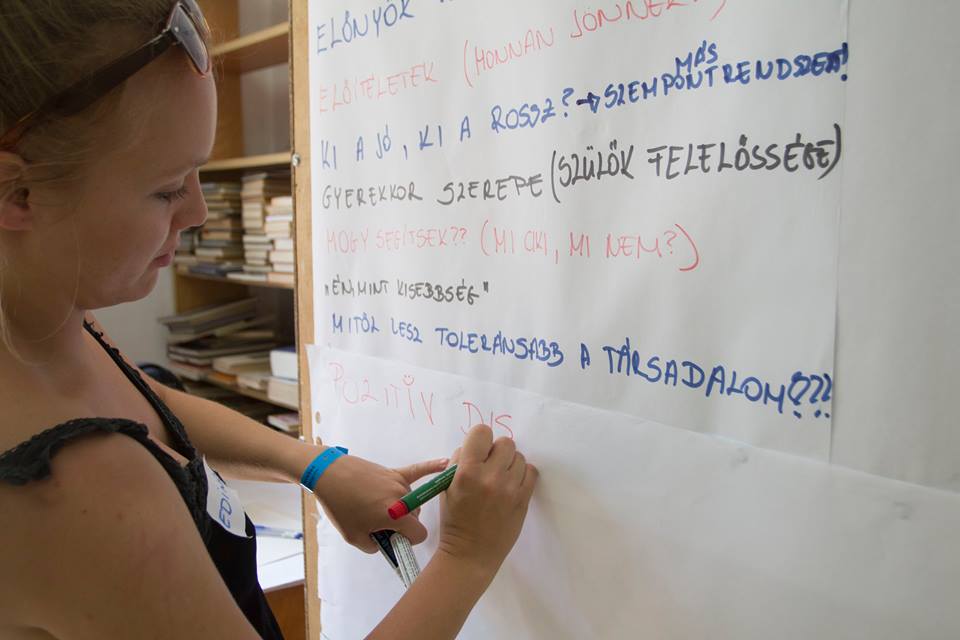 ELŐNYÖK
ELŐÍTÉLETEK (HONNAN JÖNNEK?)
KI A JÓ, KI A ROSSZ? → MÁS SZEMPONTRENDSZER!
GYEREKKOR SZEREPE (SZÜLŐK FELELŐSSÉGE)
HOGY SEGÍTSEK?? (MI CIKI, MI NEM?)
"ÉN, MINT KISEBBSÉG"
MITŐL LESZ TOLERÁNSABB A TÁRSADALOM???
POZITÍV DIS